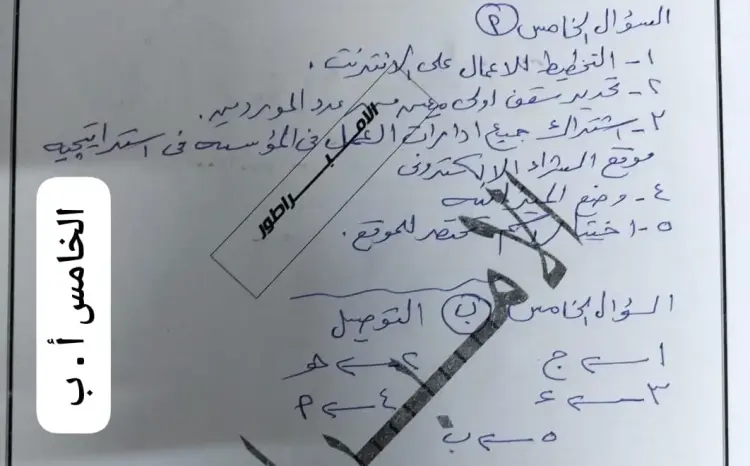 السؤال الخامس (أ)
١- التخطيط للاعمال على الانترنت .
٢- تحديد سقف اولى معين من عدد الموردين .
٣- اشتراك جميع ادارات العمل فى المؤسسه فى استراتيجيه
موقع الشراء الالكترونى
٤- وضع الميزانيه
٥- اختيار اسم مختصر للموقع .
السؤال الخامس (ب) التوصيل
١ ← ج
٢ ← هـ
٣ ← د
٤ ← أ
٥ ← ب
الخامس أ . ب
الامبراطور